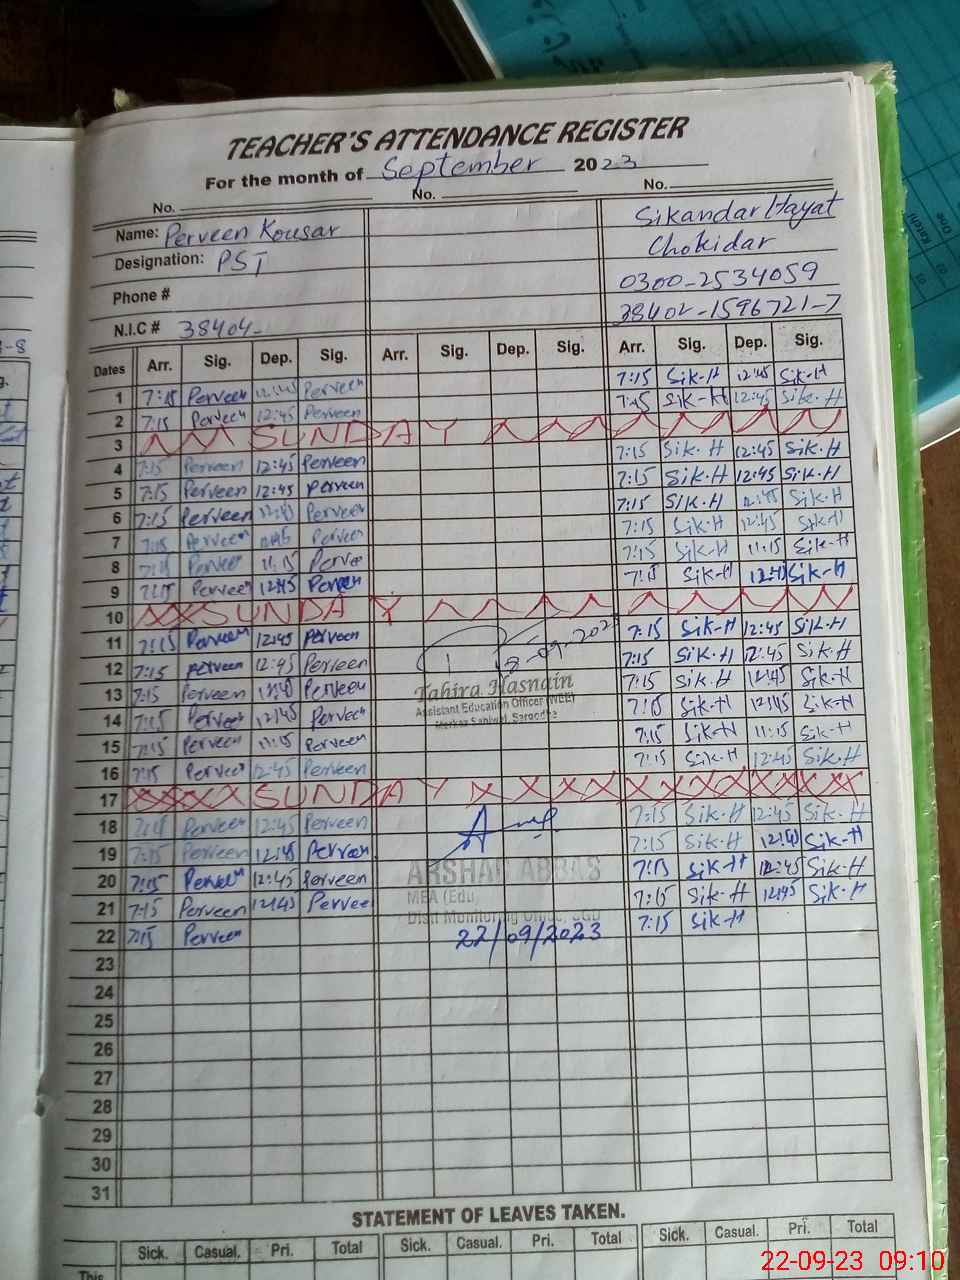 TEACHER'S ATTENDANCE REGISTER
For the month of September 2023
No. No. No.
Name: Perveen Kousar Sikandar Hayat
Designation: PST Chokidar
Phone # 0300-2534059
N.I.C # 38404- 38402-1596721-7
Dates Arr. Sig. Dep. Sig. Arr. Sig. Dep. Sig. Arr. Sig. Dep. Sig.
1 7:15 Perveen 12:45 Perveen 7:15 Sik-H 12:45 Sik-H
2 7:15 Perveen 12:45 Perveen 7:15 Sik-H 12:45 Sik-H
3 SUNDAY
4 7:15 Perveen 12:45 Perveen 7:15 Sik-H 12:45 Sik-H
5 7:15 Perveen 12:45 Perveen 7:15 Sik-H 12:45 Sik-H
6 7:15 Perveen 12:45 Perveen 7:15 Sik-H 12:45 Sik-H
7 7:15 Perveen 12:45 Perveen 7:15 Sik-H 12:45 Sik-H
8 7:15 Perveen 11:15 Pervee 7:15 Sik-H 11:15 Sik-H
9 7:15 Perveen 12:45 Perveen 7:15 Sik-H 12:45 Sik-H
10 SUNDAY
11 7:15 Perveen 12:45 Perveen 7:15 Sik-H 12:45 Sik-H
12 7:15 Perveen 12:45 Perveen 7:15 Sik-H 12:45 Sik-H
13 7:15 Perveen 12:45 Perveen 7:15 Sik-H 12:45 Sik-H
Tahira Hasnain
Assistant Education Officer (WEE)
Markaz Sahiwal, Sargodha
14 7:15 Perveen 12:45 Perveen 7:15 Sik-H 12:45 Sik-H
15 7:15 Perveen 11:15 Perveen 7:15 Sik-H 11:15 Sik-H
16 7:15 Perveen 12:45 Perveen 7:15 Sik-H 12:45 Sik-H
17 SUNDAY
18 7:15 Perveen 12:45 Perveen 7:15 Sik-H 12:45 Sik-H
19 7:15 Perveen 12:45 Perveen 7:15 Sik-H 12:45 Sik-H
20 7:15 Perveen 12:45 Perveen 7:15 Sik-H 12:45 Sik-H
21 7:15 Perveen 12:45 Pervee 7:15 Sik-H 12:45 Sik-H
ARSHAD ABBAS
MEA (Edu)
Distt Monitoring Office, SGD
22 7:15 Perveen 22/09/2023 7:15 Sik-H
23
24
25
26
27
28
29
30
31
STATEMENT OF LEAVES TAKEN.
Sick. Casual. Pri. Total Sick. Casual. Pri. Total Sick. Casual. Pri. Total
This
22-09-23 09:10